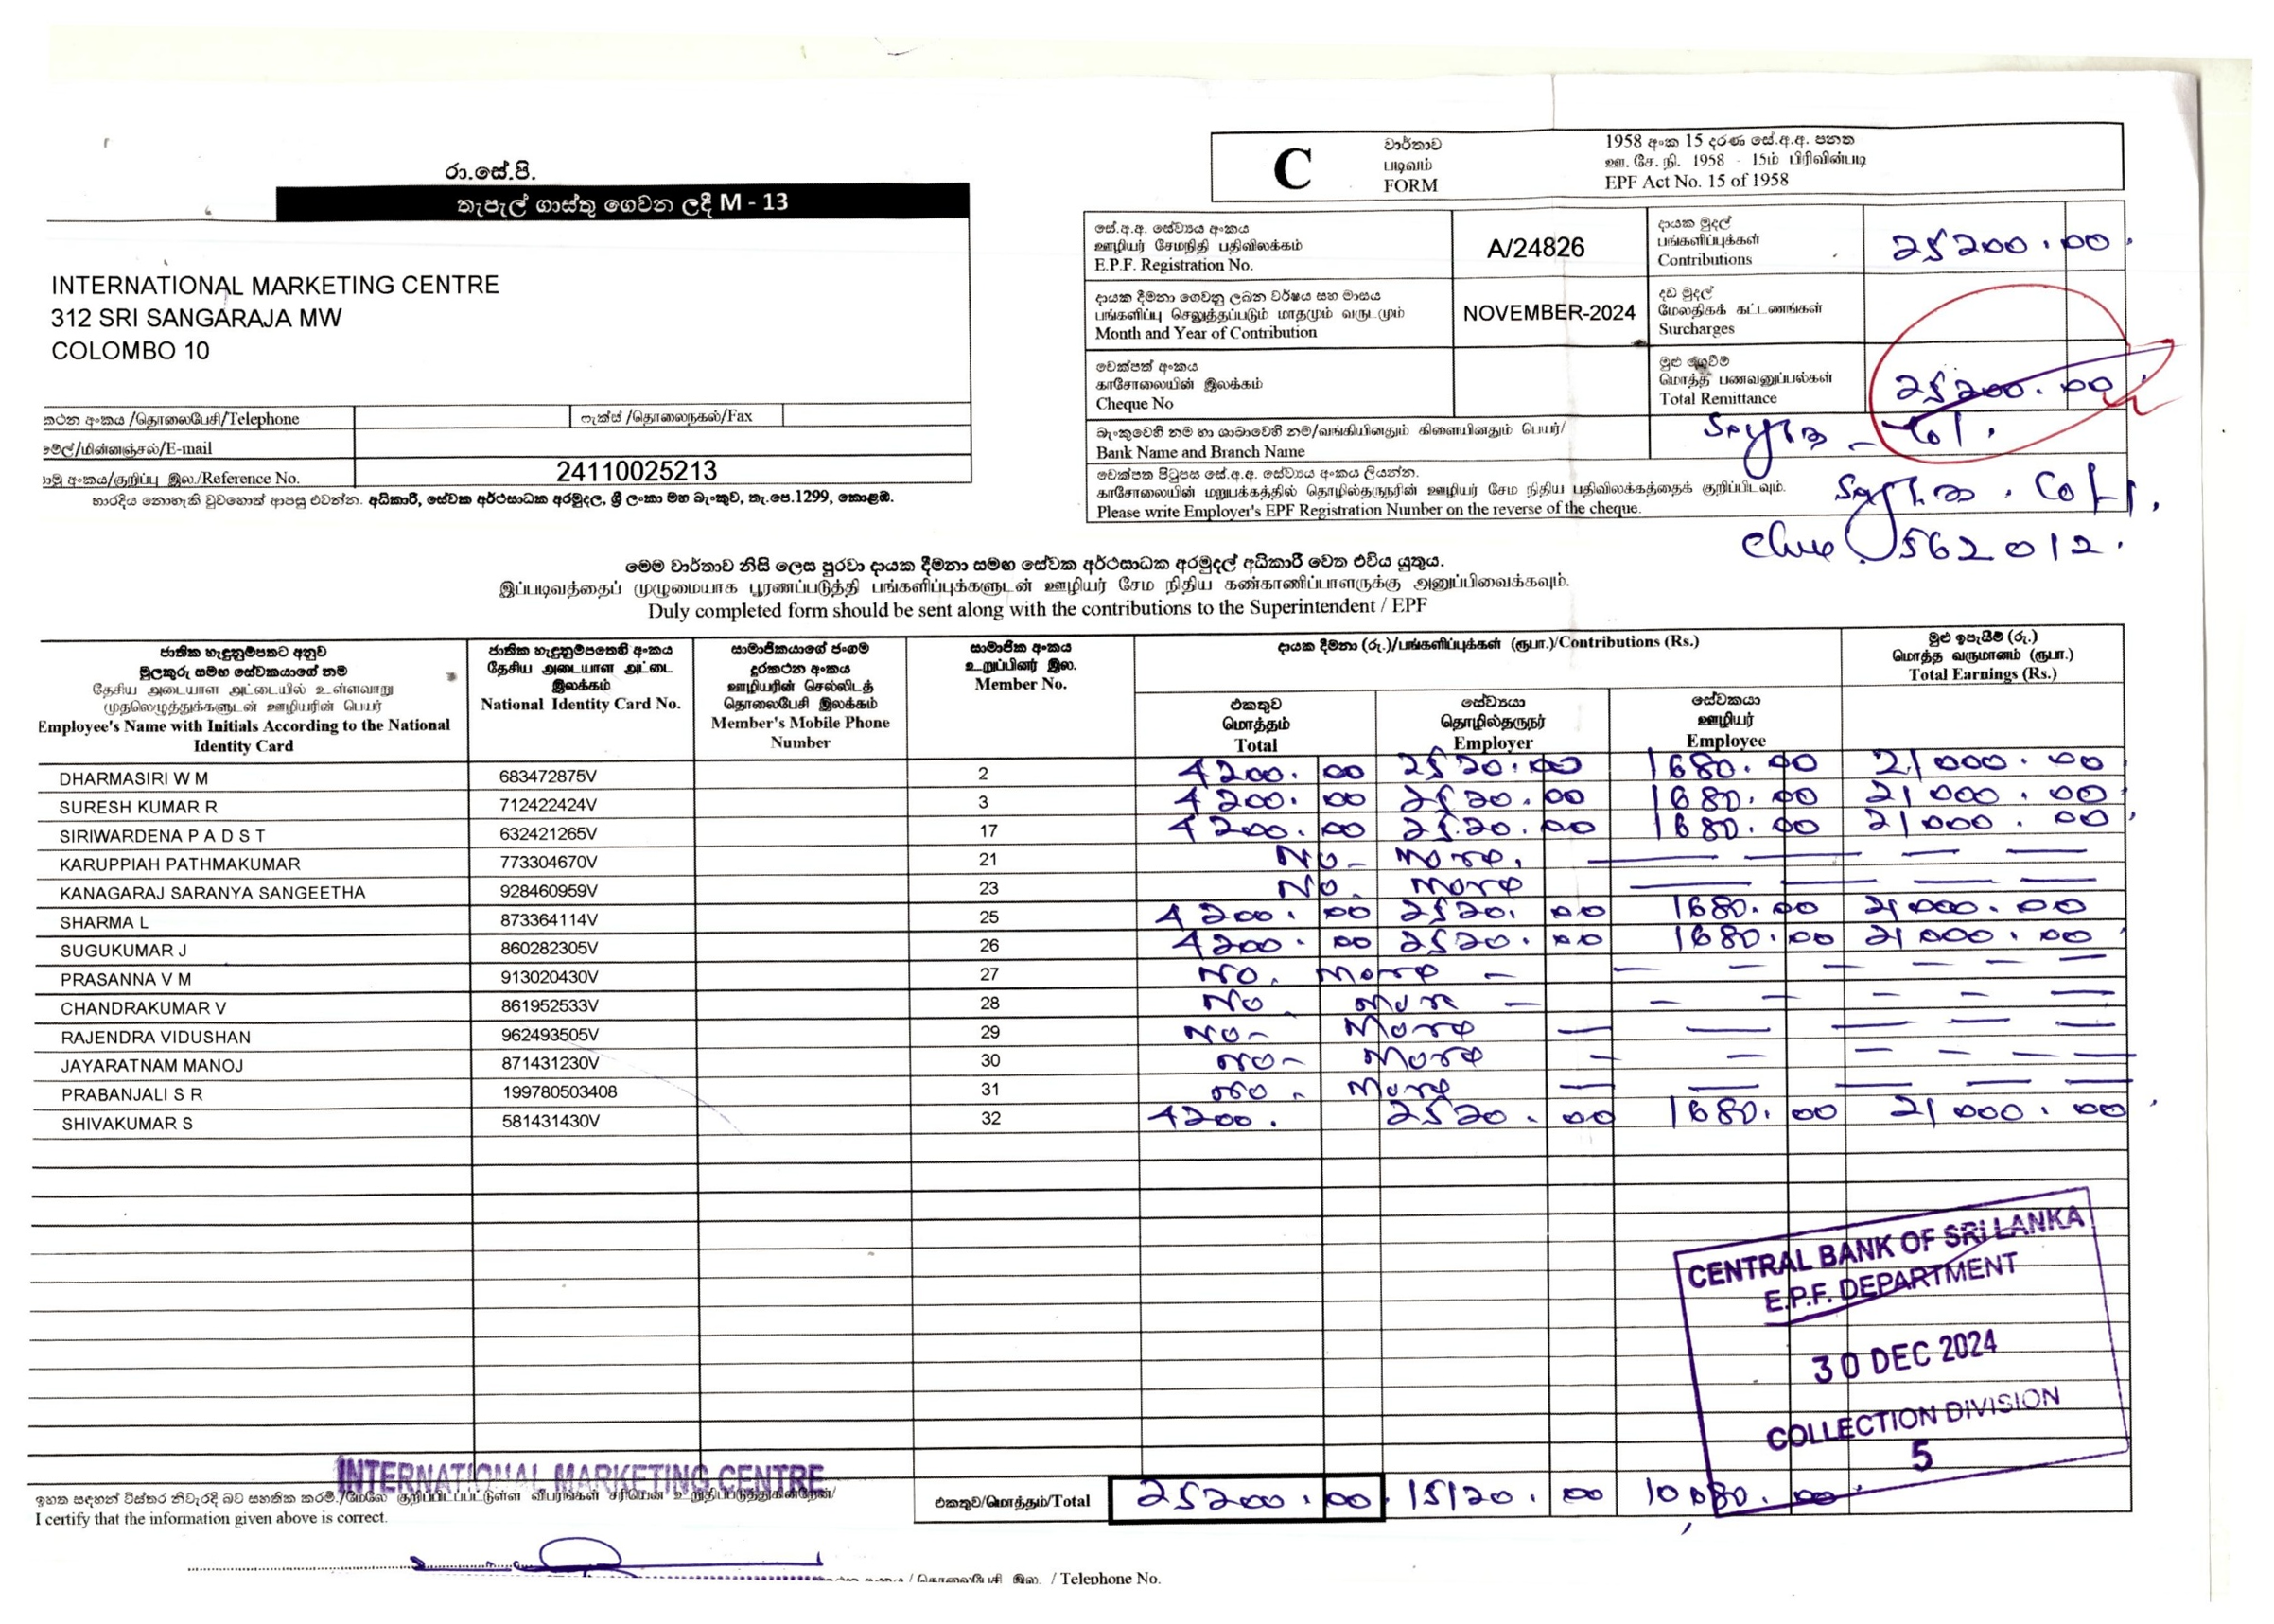 රා.සේ.පි.
තැපැල් ගාස්තු ගෙවන ලදී M - 13
INTERNATIONAL MARKETING CENTRE
312 SRI SANGARAJA MW
COLOMBO 10
කථන අංකය /தொலைபேசி/Telephone
ෆැක්ස් /தொலைநகல்/Fax
மின்னஞ்சல்/E-mail
අංකය/குறிப்பு இல./Reference No. 24110025213
භාරදිය නොහැකි වුවහොත් ආපසු එවන්න. අධිකාරී, සේවක අර්ථසාධක අරමුදල, ශ්‍රී ලංකා මහ බැංකුව, තැ.පෙ.1299, කොළඹ.
C
වාර්තාව
படிவம்
FORM
1958 අංක 15 දරණ සේ.අ.අ. පනත
ஊ. சே. நி. 1958 - 15ம் பிரிவின்படி
EPF Act No. 15 of 1958
සේ.අ.අ. සේව්‍යය අංකය
ஊழியர் சேமநிதி பதிவிலக்கம்
E.P.F. Registration No.
A/24826
දායක මුදල්
பங்களிப்புக்கள்
Contributions
25200.00
දායක දීමනා ගෙවනු ලබන වර්ෂය සහ මාසය
பங்களிப்பு செலுத்தப்படும் மாதமும் வருடமும்
Month and Year of Contribution
NOVEMBER-2024
දඩ මුදල්
மேலதிகக் கட்டணங்கள்
Surcharges
චෙක්පත් අංකය
காசோலையின் இலக்கம்
Cheque No
මුළු ගෙවීම්
மொத்த பணவனுப்பல்கள்
Total Remittance
25200.00
බැංකුවෙහි නම හා ශාඛාවෙහි නම/வங்கியினதும் கிளையினதும் பெயர்/
Bank Name and Branch Name
චෙක්පත පිටුපස සේ.අ.අ. සේව්‍යය අංකය ලියන්න.
காசோலையின் மறுபக்கத்தில் தொழில்தருநரின் ஊழியர் சேம நிதிய பதிவிலக்கத்தைக் குறிப்பிடவும்.
Please write Employer's EPF Registration Number on the reverse of the cheque.
562012.
මෙම වාර්තාව නිසි ලෙස පුරවා දායක දීමනා සමඟ සේවක අර්ථසාධක අරමුදල් අධිකාරී වෙත එවිය යුතුය.
இப்படிவத்தைப் முழுமையாக பூரணப்படுத்தி பங்களிப்புக்களுடன் ஊழியர் சேம நிதிய கண்காணிப்பாளருக்கு அனுப்பிவைக்கவும்.
Duly completed form should be sent along with the contributions to the Superintendent / EPF
ජාතික හැඳුනුම්පතට අනුව
මුලකුරු සමඟ සේවකයාගේ නම
தேசிய அடையாள அட்டையில் உள்ளவாறு
முதலெழுத்துக்களுடன் ஊழியரின் பெயர்
Employee's Name with Initials According to the National
Identity Card
ජාතික හැඳුනුම්පතෙහි අංකය
தேசிய அடையாள அட்டை
இலக்கம்
National Identity Card No.
සාමාජිකයාගේ ජංගම
දුරකථන අංකය
ஊழியரின் செல்லிடத்
தொலைபேசி இலக்கம்
Member's Mobile Phone
Number
සාමාජික අංකය
உறுப்பினர் இல.
Member No.
දායක දීමනා (රු.)/பங்களிப்புக்கள் (ரூபா.)/Contributions (Rs.)
එකතුව
மொத்தம்
Total
සේව්‍යයා
தொழில்தருநர்
Employer
සේවකයා
ஊழியர்
Employee
මුළු ඉපැයීම් (රු.)
மொத்த வருமானம் (ரூபா.)
Total Earnings (Rs.)
DHARMASIRI W M 683472875V 2 4200.00 2520.00 1680.00 21000.00
SURESH KUMAR R 712422424V 3 4200.00 2520.00 1680.00 21000.00
SIRIWARDENA P A D S T 632421265V 17 4200.00 2520.00 1680.00 21000.00
KARUPPIAH PATHMAKUMAR 773304670V 21 No - more.
KANAGARAJ SARANYA SANGEETHA 928460959V 23 No. more
SHARMA L 873364114V 25 4200.00 2520.00 1680.00 21000.00
SUGUKUMAR J 860282305V 26 4200.00 2520.00 1680.00 21000.00
PRASANNA V M 913020430V 27 No. more -
CHANDRAKUMAR V 861952533V 28 No more -
RAJENDRA VIDUSHAN 962493505V 29 No - more -
JAYARATNAM MANOJ 871431230V 30 no - more -
PRABANJALI S R 199780503408 31 no - more -
SHIVAKUMAR S 581431430V 32 4200. 2520.00 1680.00 21000.00
CENTRAL BANK OF SRI LANKA
E.P.F. DEPARTMENT
30 DEC 2024
COLLECTION DIVISION
5
INTERNATIONAL MARKETING CENTRE
ඉහත සඳහන් විස්තර නිවැරදි බව සහතික කරමි./மேலே குறிப்பிடப்பட்டுள்ள விபரங்கள் சரியென உறுதிப்படுத்துகின்றேன்/
I certify that the information given above is correct.
එකතුව/மொத்தம்/Total 25200.00 15120.00 10080.00
/ தொலைபேசி இல. / Telephone No.